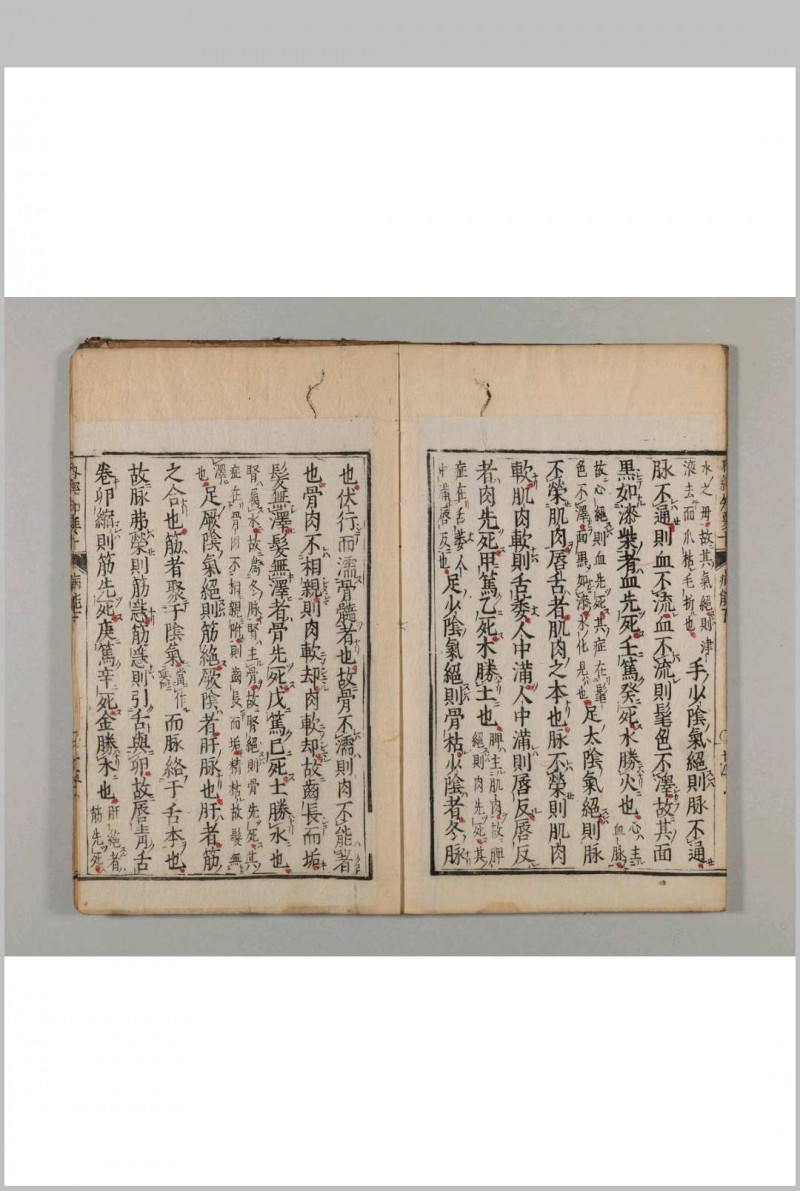 水之毋故其氣絕則津
滚去而爪枯毛折也
手少陰氣絕則脉不通
脉不通則血不流血不流則髦色不澤故其面
黒如漆柴者血先死壬篤癸死水勝火也
心主血脉
故心絕則血先死其症在髦
色不澤面黒如漆水化見也
足太陰氣絕則脉
不榮肌肉唇舌者肌肉之本也脉不榮則肌肉
軟肌肉軟則舌萎人中滿人中滿則唇反唇反
者肉先死甲篤乙死木勝土也
脾主肌肉故脾
絕則肉先死其
症在舌萎人
中滿唇反也
足少陰氣絕則骨枯少陰者冬脉
也伏行而濡骨髓者也故骨不濡則肉不能著
也骨肉不相親則肉軟却肉軟却故齒長而垢
髮無澤髮無澤者骨先死戊篤己死土勝水也
腎屬水故爲冬脉腎主骨故腎絕則骨先死其
症在骨肉不相親附則齒長而垢精枯故髮無
澤
也
足厥陰氣絕則筋絕厥陰者肝脉也肝者筋
之合也筋者聚于陰氣
而脉絡于舌本也
故脉弗榮則筋急筋急則引舌與卵故唇青舌
卷卵縮則筋先死庚篤辛死金勝木也
肝絕者
筋先死
病能